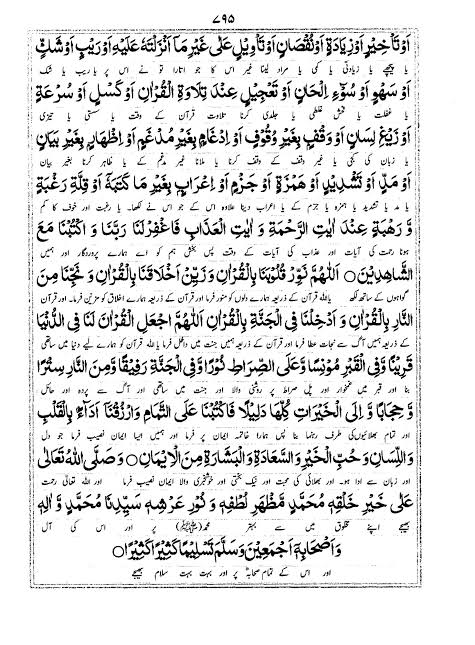 ۷۹۵
اَوْ تَاْخِیْرٍ اَوْ زِیَادَةٍ اَوْ نُقْصَانٍ اَوْ تَاْوِیْلٍ عَلٰی غَیْرِ مَآ اَنْزَلْتَهٗ عَلَیْهِ اَوْ رَیْبٍ اَوْ شَكٍّ
یا پیچھے یا زیادتی یا کمی یا مراد لینا غیر اس کا جو اتارا تو نے اس پر یا ریب یا شک
اَوْ سَهْوٍ اَوْ سُوْٓءِ اِلْحَانٍ اَوْ تَعْجِیْلٍ عِنْدَ تِلَاوَةِ الْقُرْاٰنِ اَوْ كَسَلٍ اَوْ سُرْعَةٍ
یا غفلت یا غلطی یا جلدی کرنا تلاوت قرآن کے وقت یا سستی یا تیزی
اَوْ زَیْغِ لِسَانٍ اَوْ وَقْفٍ بِغَیْرِ وُقُوْفٍ اَوْ اِدْغَامٍ بِغَیْرِ مُدْغَمٍ اَوْ اِظْهَارٍ بِغَیْرِ بَیَانٍ
یا زبان کی کجی یا بغیر وقف کے وقف کرنا یا ملانا غیر مدغم کے یا ظاہر کرنا بغیر بیان
اَوْ مَدٍّ اَوْ تَشْدِیْدٍ اَوْ هَمْزَةٍ اَوْ جَزْمٍ اَوْ اِعْرَابٍ بِغَیْرِ مَا كَتَبَهٗ اَوْ قِلَّةِ رَغْبَةٍ
یا مد یا تشدید یا ہمزہ یا جزم کے یا اعراب دینا علاوہ اس کے جو اس نے لکھا۔ یا رغبت اور خوف کا کم
وَّ رَهْبَةٍ عِنْدَ اٰیٰتِ الرَّحْمَةِ وَ اٰیٰتِ الْعَذَابِ فَاغْفِرْ لَنَا رَبَّنَا وَ اكْتُبْنَا مَعَ
ہونا رحمت کی آیات اور عذاب کی آیات کے وقت پس بخش ہم کو اے ہمارے پروردگار اور ہمیں
الشَّاهِدِیْنَ ○ اَللّٰهُمَّ نَوِّرْ قُلُوْبَنَا بِالْقُرْاٰنِ وَ زَیِّنْ اَخْلَاقَنَا بِالْقُرْاٰنِ وَ نَجِّنَا مِنَ
گواہوں کے ساتھ لکھ یا اللہ قرآن کے ذریعہ ہمارے دلوں کو منور فرما اور قرآن کے ذریعہ ہمارے اخلاق کو مزین فرما۔ اور قرآن
النَّارِ بِالْقُرْاٰنِ وَ اَدْخِلْنَا فِی الْجَنَّةِ بِالْقُرْاٰنِ اَللّٰهُمَّ اجْعَلِ الْقُرْاٰنَ لَنَا فِی الدُّنْیَا
کے ذریعہ ہمیں آگ سے نجات عطا فرما اور قرآن کے ذریعہ ہمیں جنت میں داخل فرما یا اللہ قرآن کو ہمارے لیے دنیا میں ساتھی
قَرِیْبًا وَّ فِی الْقَبْرِ مُوْنِسًا وَّ عَلَی الصِّرَاطِ نُوْرًا وَّ فِی الْجَنَّةِ رَفِیْقًا وَّ مِنَ النَّارِ سِتْرًا
بنا اور قبر میں غمخوار اور پل صراط پر روشنی والا اور جنت میں ساتھی اور آگ سے پردہ اور حائل
وَّ حِجَابًا وَّ اِلَی الْخَیْرَاتِ كُلِّهَا دَلِیْلًا فَاكْتُبْنَا عَلَی التَّمَامِ وَ ارْزُقْنَا اَدَآءً بِالْقَلْبِ
اور تمام بھلائیوں کی طرف رہنما بنا پس ہمارا خاتمہ ایمان پر فرما اور ہمیں ایسا ایمان نصیب فرما جو دل
وَ اللِّسَانِ وَ حُبِّ الْخَیْرِ وَ السَّعَادَةِ وَ الْبَشَارَةِ مِنَ الْاِیْمَانِ ○ وَ صَلَّی اللهُ تَعَالٰی
اور زبان سے ادا ہو۔ اور بھلائی کی محبت اور نیک بختی اور خوشخبری والا ایمان نصیب فرما اور اللہ تعالی رحمت
عَلٰی خَیْرِ خَلْقِهٖ مُحَمَّدٍ مَّظْهَرِ لُطْفِهٖ وَ نُوْرِ عَرْشِهٖ سَیِّدِنَا مُحَمَّدٍ وَّ اٰلِهٖ
بھیجے اپنے مخلوق میں سے بہتر محمد (ﷺ) پر اور اس کی آل
وَ اَصْحَابِهٖ اَجْمَعِیْنَ وَ سَلَّمَ تَسْلِیْمًا كَثِیْرًا كَثِیْرًا ○
اور اس کے تمام صحابہؓ پر اور بہت بہت سلام بھیجے